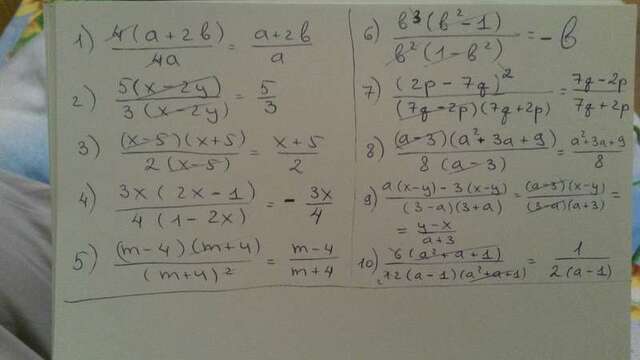 1) 4(a+2b)/4a = a+2b/a
2) 5(x-2y)/3(x-2y) = 5/3
3) (x-5)(x+5)/2(x-5) = x+5/2
4) 3x(2x-1)/4(1-2x) = - 3x/4
5) (m-4)(m+4)/(m+4)² = m-4/m+4
6) b³(b²-1)/b²(1-b²) = -b
7) (2p-7q)²/(7q-2p)(7q+2p) = 7q-2p/7q+2p
8) (a-3)(a²+3a+9)/8(a-3) = a²+3a+9/8
9) a(x-y)-3(x-y)/(3-a)(3+a) = (a-3)(x-y)/(3-a)(a+3) =
= y-x/a+3
10) 6(a²+a+1)/12(a-1)(a²+a+1) = 1/2(a-1)